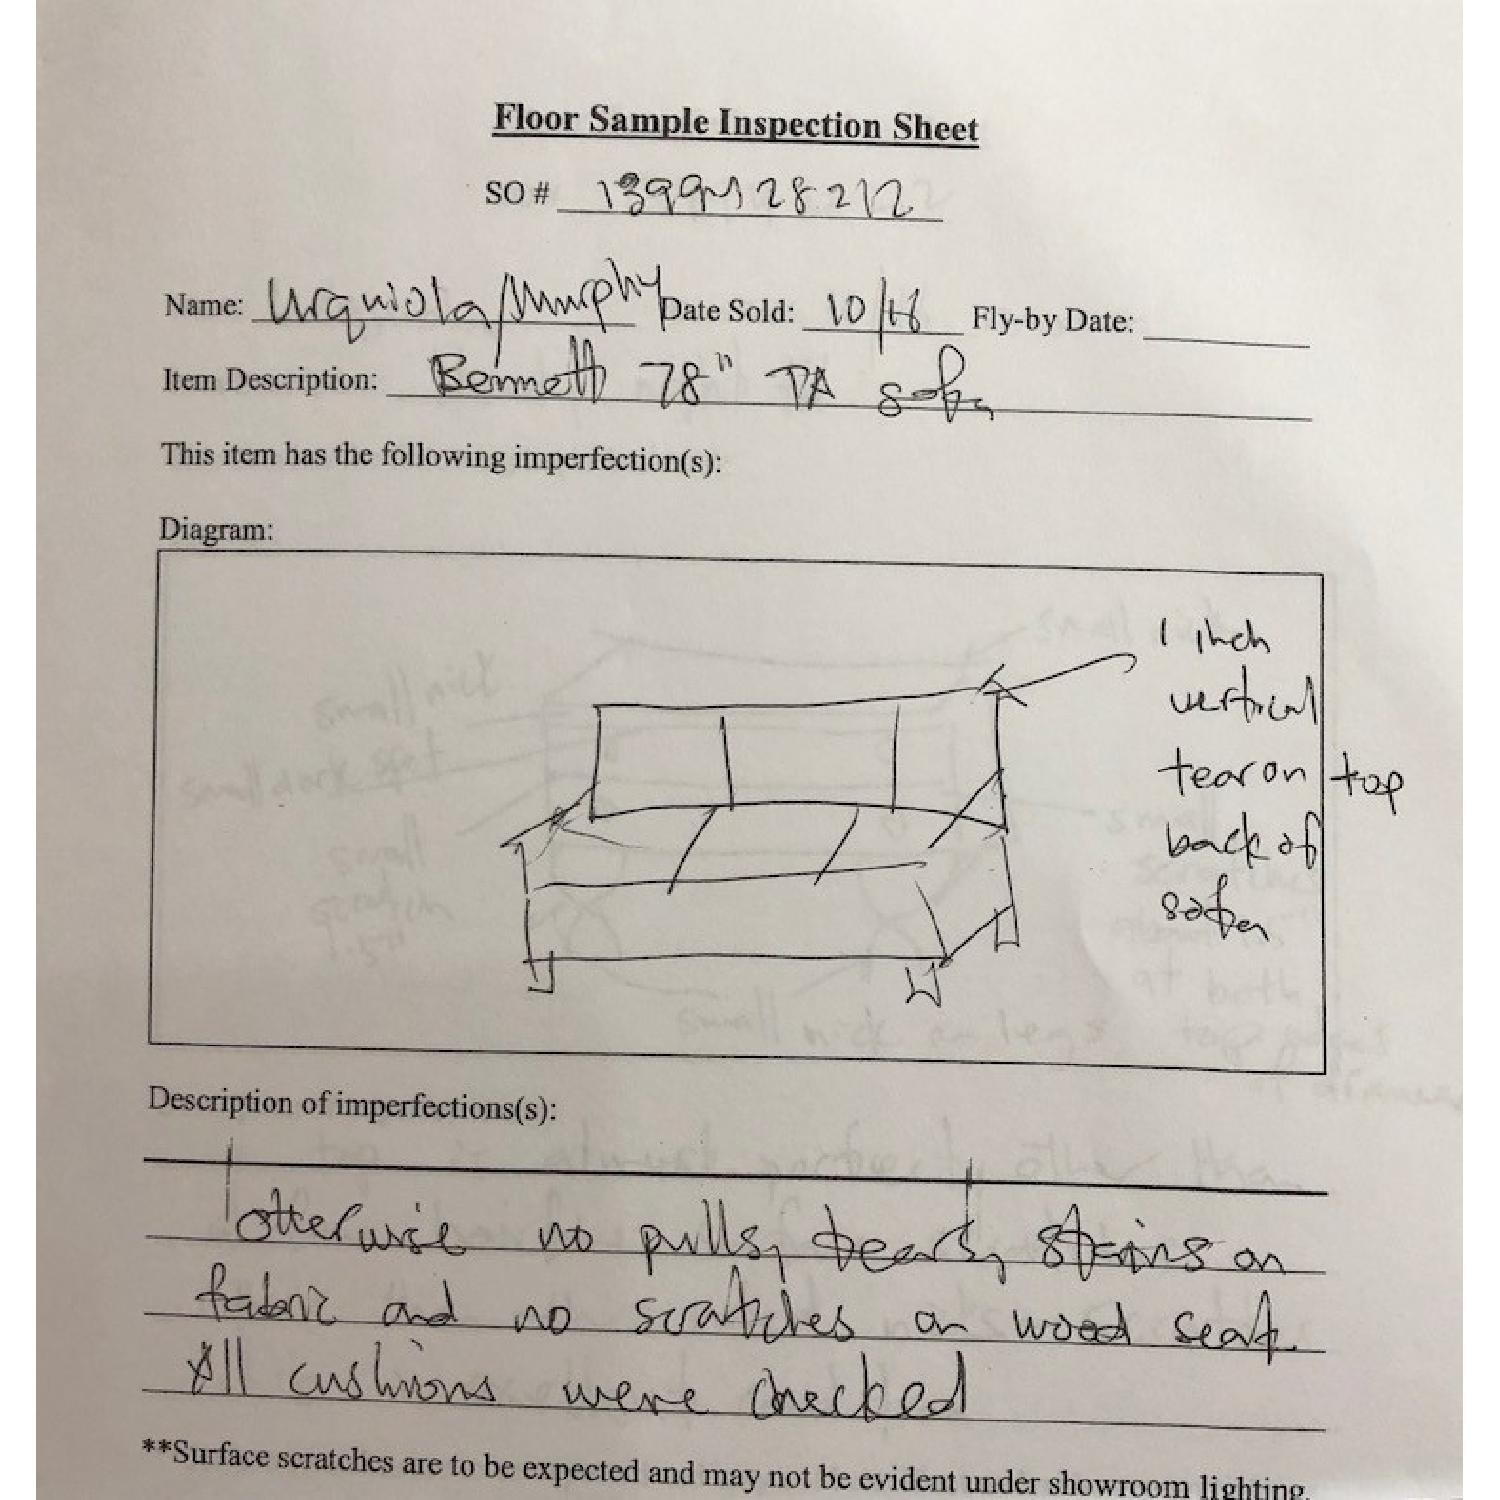 Floor Sample Inspection Sheet
SO #
Name: Urquiola/Murphy Date Sold: 10/16 Fly-by Date:
Item Description: Bennett 78" TA sofa
This item has the following imperfection(s):
Diagram:
1 inch
vertical
tear on top
back of
sofa
Description of imperfections(s):
otherwise no pulls, tears, stains on
fabric and no scratches on wood seat.
All cushions were checked
**Surface scratches are to be expected and may not be evident under showroom lighting.